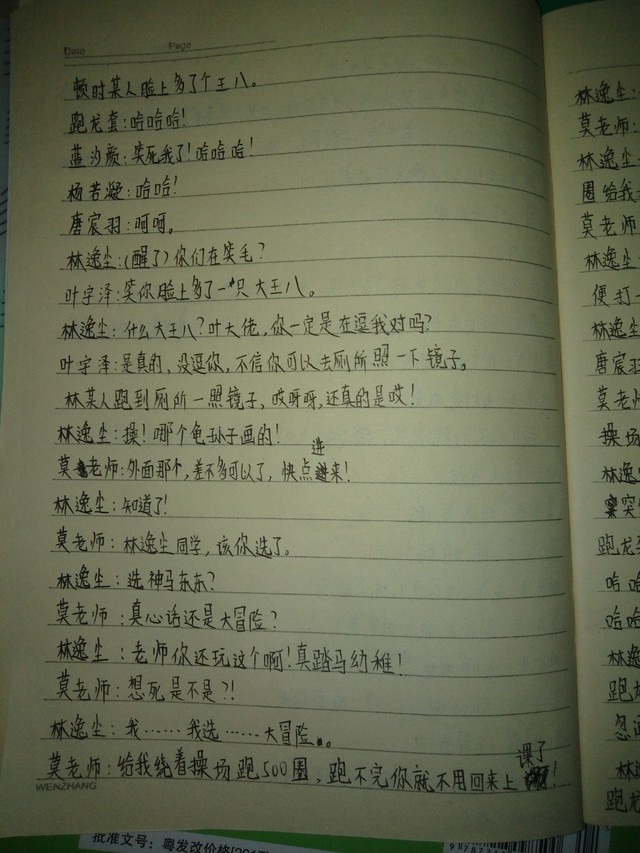 Date Page
顿时某人脸上多了个王八。
跑龙套:哈哈哈!
蓝汐颜:笑死我了!哈哈哈!
杨若凝:哈哈!
唐宸羽:呵呵。
林逸尘:(醒了)你们在笑毛?
叶宇泽:笑你脸上多了一只大王八。
林逸尘:什么大王八?叶大佬,你一定是在逗我对吗?
叶宇泽:是真的,没逗你,不信你可以去厕所照一下镜子。
林某人跑到厕所一照镜子,哎呀呀,还真的是哎!
林逸尘:操!哪个龟孙子画的!
莫老师:外面那个,差不多可以了,快点进来!
林逸尘:知道了!
莫老师:林逸尘同学,该你选了。
林逸尘:选神马东东?
莫老师:真心话还是大冒险?
林逸尘:老师你还玩这个啊!真踏马幼稚!
莫老师:想死是不是?!
林逸尘:我……我选……大冒险。
莫老师:给我绕着操场跑500圈,跑不完你就不用回来上课了!
WENZHANG
林逸尘:
莫老师:
林逸尘
圈给我
莫老师
林逸尘
便打一
林逸尘
唐宸
莫老
操场
林逸
突
跑龙
哈哈
哈哈
林逸
跑
忽
林
跑龙
批准文号:粤发改价格[201